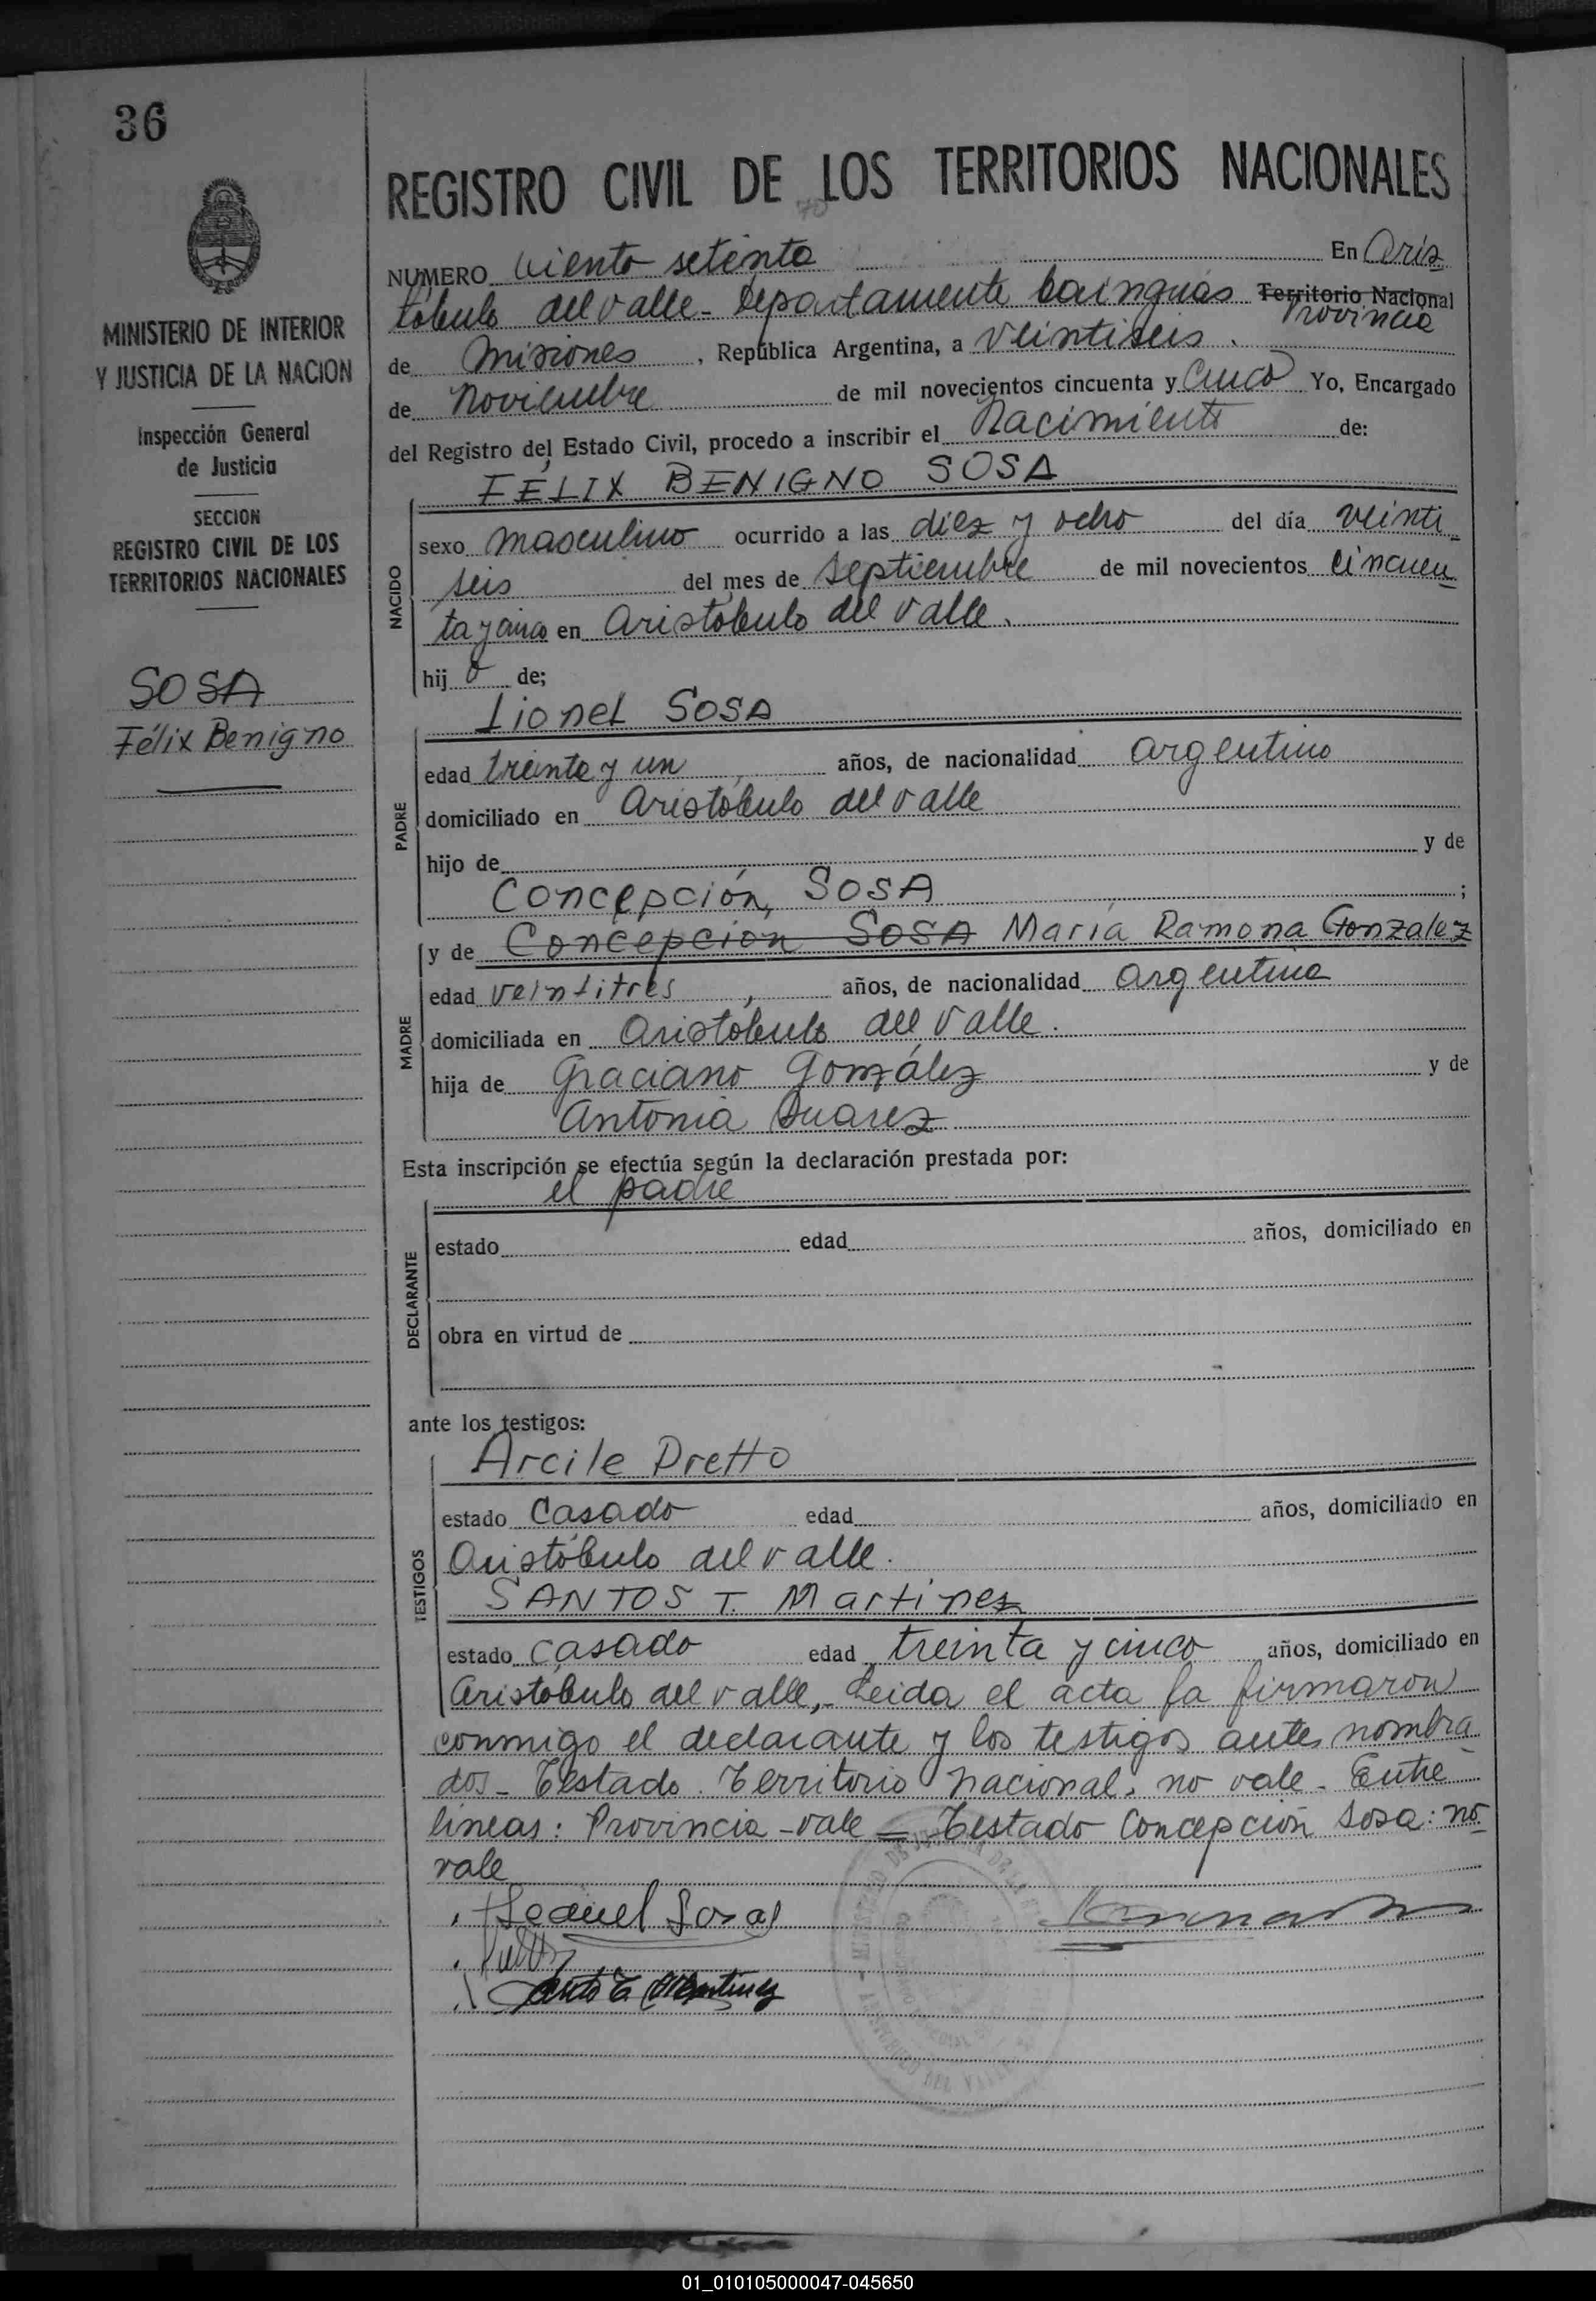 36
MINISTERIO DE INTERIOR
Y JUSTICIA DE LA NACION
Inspección General
de Justicia
SECCION
REGISTRO CIVIL DE LOS
TERRITORIOS NACIONALES
SOSA
Félix Benigno
REGISTRO CIVIL DE LOS TERRITORIOS NACIONALES
70
NUMERO Ciento setenta En Aris
tóbulo del valle - Departamente Cainguas Territorio Nacional
Provincia
de Misiones , República Argentina, a veintiseis
de Noviembre de mil novecientos cincuenta y Cinco Yo, Encargado
del Registro del Estado Civil, procedo a inscribir el Nacimiento de:
FÉLIX BENIGNO SOSA
NACIDO
sexo masculino ocurrido a las diez y ocho del día veinti
seis del mes de septiembre de mil novecientos cincuen
ta y cinco en Aristóbulo del valle.
hij o de;
Lionel SOSA
PADRE
edad treinta y un años, de nacionalidad argentino
domiciliado en Aristóbulo del valle
hijo de y de
Concepción, SOSA ;
MADRE
y de Concepción SOSA María Ramona Gonzalez
edad veintitrés , años, de nacionalidad argentina
domiciliada en Aristóbulo del valle.
hija de Graciano González y de
Antonia Suarez
Esta inscripción se efectúa según la declaración prestada por:
el padre
DECLARANTE
estado edad años, domiciliado en
obra en virtud de
ante los testigos:
TESTIGOS
Arcile Pretto
estado Casado edad años, domiciliado en
Aristóbulo del valle.
SANTOS T. Martinez
estado casado edad treinta y cinco años, domiciliado en
Aristóbulo del valle,- Leida el acta la firmaron
conmigo el declarante y los testigos antes nombra
dos - Testado. Territorio nacional, no vale - Entre
líneas: Provincia - vale = Testado Concepción Sosa: no
vale
01_010105000047-045650